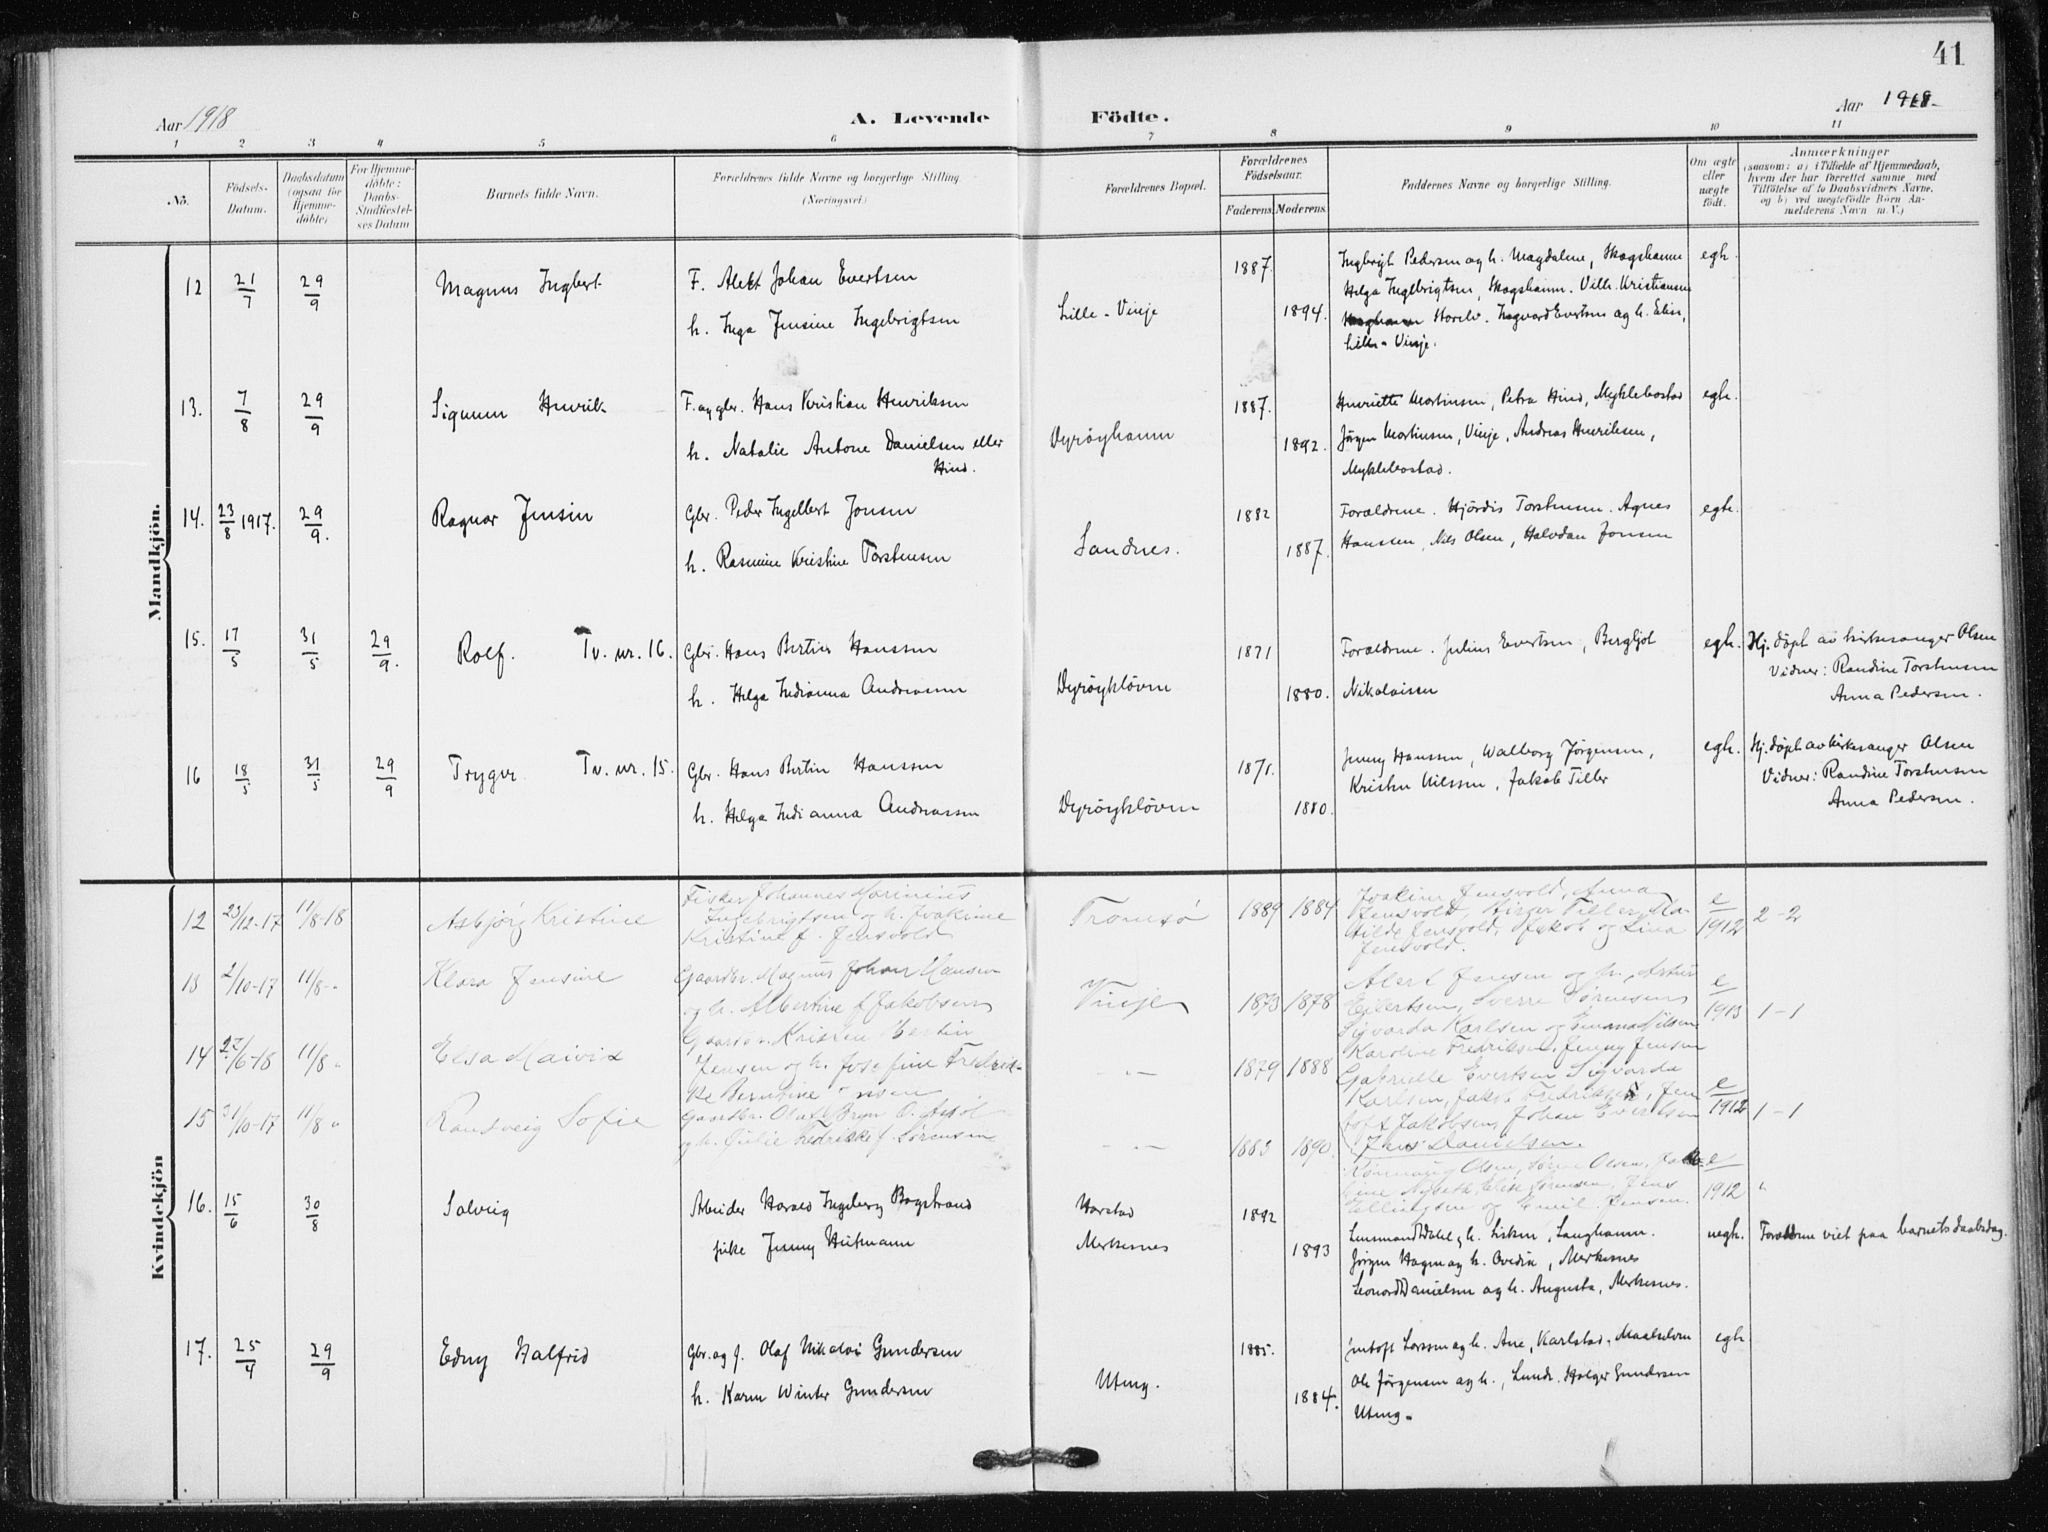 41
Aar 1918
A. Levende
Födte.
Aar 1918
1 2 3 4 5 6 7 8 9 10 11
No.
Födsels-Datum.
Daabsdatum (ogsaa for Hjemme-döbte)
For Hjemme-döbte: Daabs-Stadfæstel-ses Datum
Barnets fulde Navn.
Forældrenes fulde Navne og borgerlige Stilling. (Næringsvei)
Forældrenes Bopæl.
Forældrenes Födselsaar.
Faderens. Moderens.
Faddernes Navne og borgerlige Stilling.
Om ægte eller uægte födt.
Anmærkninger
(saasom: a) i Tilfælde af Hjemmedaab, hvem der har forrettet samme med Tilföielse af to Daabsvidners Navne, og b) ved uægtefödte Börn An-melderens Navn m. V.)
Mandkjön.
12 21/7 29/9 Magnus Ingbert
F. Alekt Johan Evertsen
h. Inga Jensine Ingebrigtsen
Lille-Vinje
1887. 1894.
Ingbrigt Pedersen og h. Magdalene, Skogshamn
Helga Ingebrigtsen, Skogshamn. Vilh. Kristiansen
Ingvard Evertsen og h. Elise,
Lille-Vinje.
egh.
13. 7/8 29/9 Sigmun Henrik
F. og gbr. Hans Kristian Henriksen
h. Natalie Antone Danielsen eller
Hind.
Dyröyhamn
1887. 1892.
Henriette Mortinsen, Petra Hind, Myklebostad
Jörgen Mortinsen, Vinje, Andreas Henriksen,
Myklebostad.
egh.
14. 23/8 1917. 29/9. Ragnar Jensin
Gbr. Peder Ingelbert Jonsen
h. Rasmine Kristine Torstensen
Sandnes.
1882 1887.
Forældrene. Hjördis Torstensen. Agnes
Hanssen, Nils Olsen, Halvdan Jonsen
egh.
15. 17/5 31/5 29/9. Rolf. Tv. nr. 16.
Gbr. Hans Bertin Hanssen
h. Helga Indianna Andreassen
Dyröykløven
1871 1880.
Forældrene. Julius Evertsen, Bergljot
Nikolaisen
egh.
Hj. døpt av kirkesanger Olsen
Vidner: Randine Torstensen
Anna Pedersen.
16 18/5 31/5 29/9 Trygve Tv. nr. 15.
Gbr. Hans Bertin Hanssen
h. Helga Indianna Andreassen
Dyröykløven
1871. 1880.
Jenny Hanssen, Walborg Jørgensen,
Kristen Nilssen, Jakob Tiller
egh.
Hj. døpt av kirkesanger Olsen
Vidner: Randine Torstensen
Anna Pedersen.
Kvindekjön
12 23/12-17 11/8-18 Asbjörg Kristine
Fisker Johannes Marinius
Ingebrigtsen og h. Joakime
Kristine f. Jensvold
Tromsø
1889 1884
Joakim Jensvold, Anna
Jensvold, Birger Tiller, Ma-
tilde Jensvold, Jakob og Lina
Jensvold.
e/1912 2-2
13 2/10-17 11/8-" Klara Jensine
Gaardbr. Magnus Johan Hansen
og h. Albertine f. Jakobsen
Vinje
1873 1878
Albert Jensen og h., Artur
Eilertsen, Sverre Sørensen,
Sigvarda Karlsen og Emma Nilsen
e/1913 1-1
14 22/6-18 11/8 " Elsa Maivix
Gaardbr. Kristen Bertin
Jensen og h. Josefine Fredrik-
ke Berntine
-"-
1879 1888
Karoline Fredriksen, Jenny Jensen
Gabrielle Evertsen Sigvarda
Karlsen, Jakob Fredriksen, Jen
toft Jakobsen, Johan Evertsen
Jens Danielsen.
e/1912 1-1
15 31/10-17 11/8 " Randveig Sofie
og h. Julie Fredrikke f. Sørensen
-"-
1883 1890
Olsen, Søren Olsen,
Elise Sørensen, Jens
Ellingsen og Emil Jensen.
e/1912 "
16. 15/6 30/8 Solveig
Arbeider Harald Ingeberg Bogstrand
pike Jenny Heitmann
Harstad
Merkesnes
1892 1893
Lensmand Dahl og h. Lisken, Langhamn.
Jörgen Hagen og h. Ovedia, Merkesnes
Leonard Danielsen og h. Augusta, Merkesnes.
uegh.
Forældrene viet paa barnets daabsdag.
17. 25/4 29/9 Edny Halfrid
Gbr. og f. Olaf Nikolai Gundersen
h. Karen Winter Gundersen
Uteng.
1885. 1884.
Jentoft Larssen og h. Ane, Karlstad, Maalselven
Ole Jørgensen og h., Lund. Holger Gundersen
Uteng.
egh